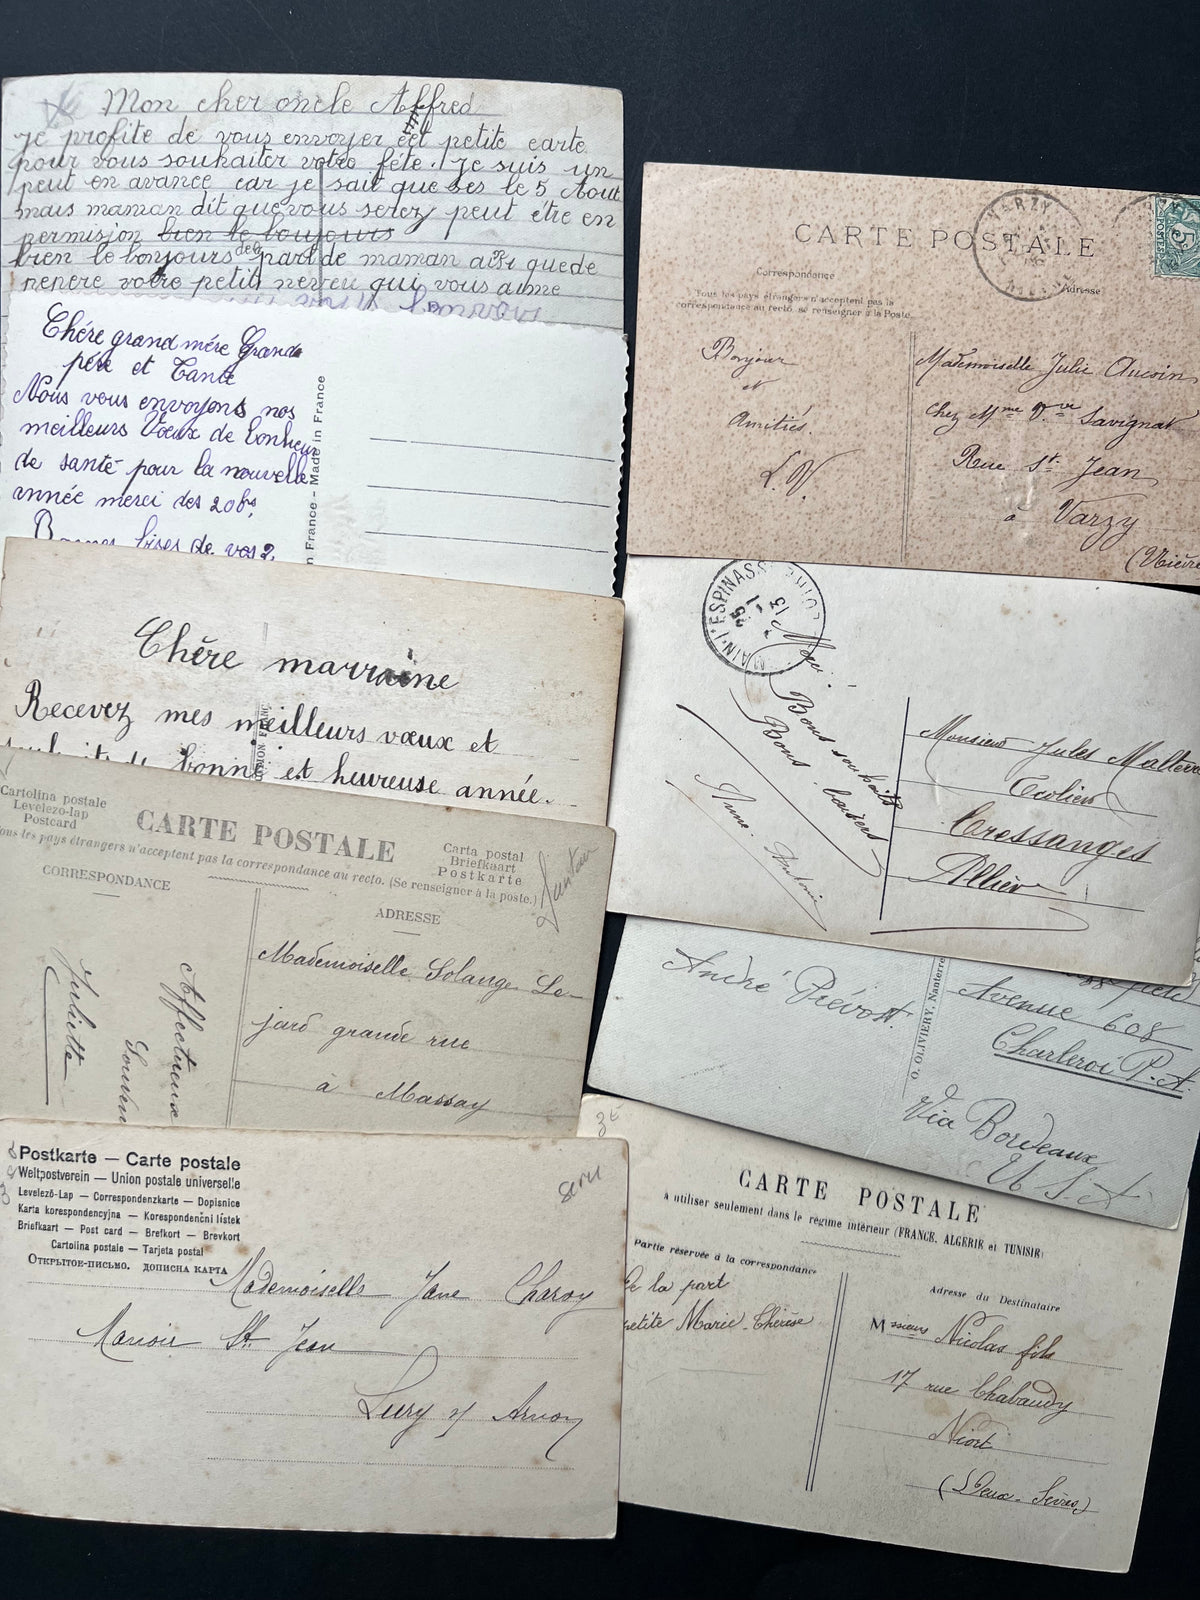 Mon cher oncle Alfred
je profite de vous envoyer cet petite carte
pour vous souhaiter votre féte. Je suis un
peut en avance car je sait que ses le 5 Aout
mais maman dit que vous serez peut étre en
permision bien le boujours
bien le bonjours de la part de maman que de
renere votre petit neveu qui vous aime
Chére grand mére Grand
pére et Tante
Nous vous envoyons nos
meilleurs Voeux de bonheur
de santé pour la nouvelle
année merci des 20 frs
Bonnes bises de vos 2
n France - Made in France
Chère marraine
Recevez mes meilleurs vœux et
de bonne et heureuse année.
Cartolina postale
Levelezo-lap
Postcard
CARTE POSTALE
Carta postal
Briefkaart
Postkarte
Tous les pays étrangers n'acceptent pas la correspondance au recto. (Se renseigner à la poste.)
CORRESPONDANCE
ADRESSE
Affectueux
Souven
Juliette
Mademoiselle Solange Le-
jard grande rue
à Massay
Postkarte — Carte postale
Weltpostverein — Union postale universelle
Levelező-Lap — Correspondenzkarte — Dopisnice
Karta korespondencyjna — Korespondenční lístek
Briefkaart — Post card — Brefkort — Brevkort
Cartolina postale — Tarjeta postal
Открытое-письмо. дописна карта
Mademoiselle Jane Charoy
Manoir St. Jean
Lury s/ Arnon
CARTE POSTALE
VARZY
POSTES
5c
Correspondance
Adresse
Tous les pays étrangers n'acceptent pas la
correspondance au recto, se renseigner à la Poste.
Bonjour
et
Amitiés.
L. V.
Mademoiselle Julie Aucoin
chez Mme Vve Savignat
Rue St. Jean
à Varzy
(Nièvre
25
1
13
Bons souhaits
Bons baisers
Anne. Antonie
Monsieur Jules
Ecolier
Cressanges
Allier
André Prévost.
O. OLIVIERY, Nanterre
Avenue 608
Charleroi P.A.
Via Bordeaux
U S.A
3E
CARTE POSTALE
à utiliser seulement dans le régime intérieur (FRANCE, ALGERIE et TUNISIE)
Partie réservée à la correspondance
De la part
petite Marie-Thérèse
Adresse du Destinataire
Messieurs Nicolas fils
17 rue Chabaudy
Niort
(Deux-Sèvres)